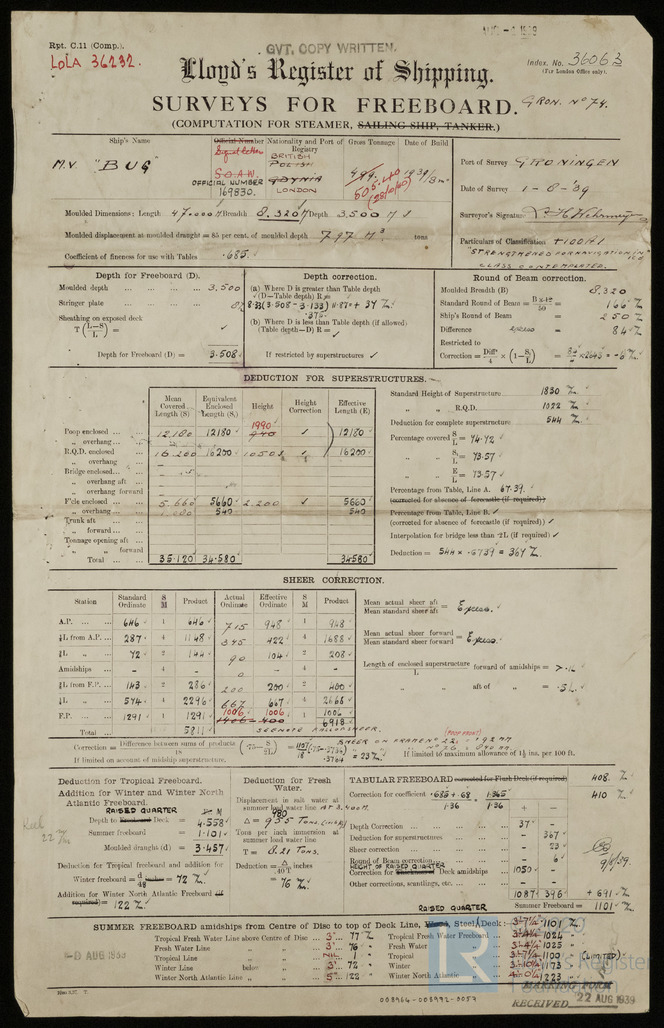 Rpt. C.11 (Comp.).
LoLA 36232.
GVT. COPY WRITTEN.
Index. No. 36063
(For London Office only).
Lloyd's Register of Shipping.
SURVEYS FOR FREEBOARD. GRON. No 74.
(COMPUTATION FOR STEAMER, SAILING SHIP, TANKER.)
Ship's Name Official Number Nationality and Port of Registry Gross Tonnage Date of Build
M.V. "BUG"
Signal letters
S.O.A.W.
OFFICIAL NUMBER
169830.
BRITISH
POLISH
GDYNIA
LONDON
505.40
(28/10/40)
Port of Survey GRONINGEN
Date of Survey 1-8-'39
Surveyor's Signature
Particulars of Classification +100A1
"STRENGTHENED FOR NAVIGATION IN ICE"
CLASS CONTEMPLATED.
Moulded Dimensions: Length 47.000 M Breadth 8.320 M Depth 3.500 M
Moulded displacement at moulded draught = 85 per cent. of moulded depth 797 M³ tons
Coefficient of fineness for use with Tables .685
Depth for Freeboard (D).
Moulded depth 3.500
Stringer plate 8
Sheathing on exposed deck
T (L-S/L) =
Depth for Freeboard (D) = 3.508
Depth correction.
(a) Where D is greater than Table depth
(D-Table depth) R =
8.33(3.508-3.133) = + 37
.375
(b) Where D is less than Table depth (if allowed)
(Table depth-D) R =
If restricted by superstructures
Round of Beam correction.
Moulded Breadth (B) 8.320
Standard Round of Beam = B x 12/50 = 166
Ship's Round of Beam = 250
Difference 84
Restricted to
Correction = Diff/4 x (1 - S1/L) = 84/4 x .2643 = -6
DEDUCTION FOR SUPERSTRUCTURES.
Mean Covered Length (S) Equivalent Enclosed Length (S1) Height Height Correction Effective Length (E)
Poop enclosed 12.180 12180 1990 12180
„ overhang
R.Q.D. enclosed 16.200 16200 1050 16200
„ overhang
Bridge enclosed
„ overhang aft
„ overhang forward
F'cle enclosed 5.660 5660 2.200 5660
„ overhang 540 540
Trunk aft
„ forward
Tonnage opening aft
„ „ forward
Total 35.120 34.580 34580
Standard Height of Superstructure 1830
„ „ R.Q.D. 1022
Deduction for complete superstructure 544
Percentage covered S/L = 74.72
„ S1/L = 73.57
„ E/L = 73.57
Percentage from Table, Line A. 67.39.
(corrected for absence of forecastle (if required))
Percentage from Table, Line B.
(corrected for absence of forecastle (if required))
Interpolation for bridge less than .2L (if required)
Deduction = 544 x .6739 = 367
SHEER CORRECTION.
Station Standard Ordinate S M Product Actual Ordinate Effective Ordinate S M Product
A.P. 646 1 646 715 948 1 948
⅙L from A.P. 287 4 1148 345 422 4 1688
⅓L „ 72 2 144 90 104 2 208
Amidships - 4 - 0 - 4 -
⅓L from F.P. 143 2 286 200 200 2 400
⅙L „ 574 4 2296 667 667 4 2668
F.P. 1291 1 1291 1006 1006 1 1006
Total 5811 6918
Mean actual sheer aft / Mean standard sheer aft = Excess.
Mean actual sheer forward / Mean standard sheer forward = Excess.
Length of enclosed superstructure / L forward of amidships = >.1L
„ „ aft of „ = .5L
Correction = Difference between sums of products / 18 (.75 - S/2L) = 1107/18 (.75-.3736) = -23
.3764
If limited on account of midship superstructure.
If limited to maximum allowance of 1½ ins. per 100 ft.
Deduction for Tropical Freeboard.
Addition for Winter and Winter North Atlantic Freeboard.
RAISED QUARTER M
Depth to Deck = 4.558
Summer freeboard = 1.101
Moulded draught (d) = 3.457
Deduction for Tropical freeboard and addition for
Winter freeboard = d/48 = 72
Addition for Winter North Atlantic Freeboard (if required) =
122
Deduction for Fresh Water.
Displacement in salt water at summer load water line
Δ = TONS
Tons per inch immersion at summer load water line
T = 8.21 TONS.
Deduction = Δ/40 T
= 76
TABULAR FREEBOARD corrected for Flush Deck (if required) 408
Correction for coefficient .685+.68/1.36 = 1.365/1.36 410
+ -
Depth Correction 37 -
Deduction for superstructures - 367
Sheer correction - 23
Round of Beam correction - 6
HEIGHT OF RAISED QUARTER
Correction for Deck amidships 1050 -
Other corrections, scantlings, etc. - -
1087 396 + 691
Summer Freeboard = 1101
9/8/39
RAISED QUARTER
SUMMER FREEBOARD amidships from Centre of Disc to top of Deck Line, Wood, Steel, Deck: 3'-7¼" 1101
Tropical Fresh Water Line above Centre of Disc 3" 77
Fresh Water Line „ 3" 76
Tropical Line „ NIL 1
Winter Line below „ 3" 72
Winter North Atlantic Line „ 5" 122
Tropical Fresh Water Freeboard 1024
Fresh Water „ 1025
Tropical „ 1100 (LIMITED)
Winter „ 1173
Winter North Atlantic „ 1223
MARKING FORM
RECEIVED 22 AUG 1939
9 AUG 1939
008964-008992-0057
LR